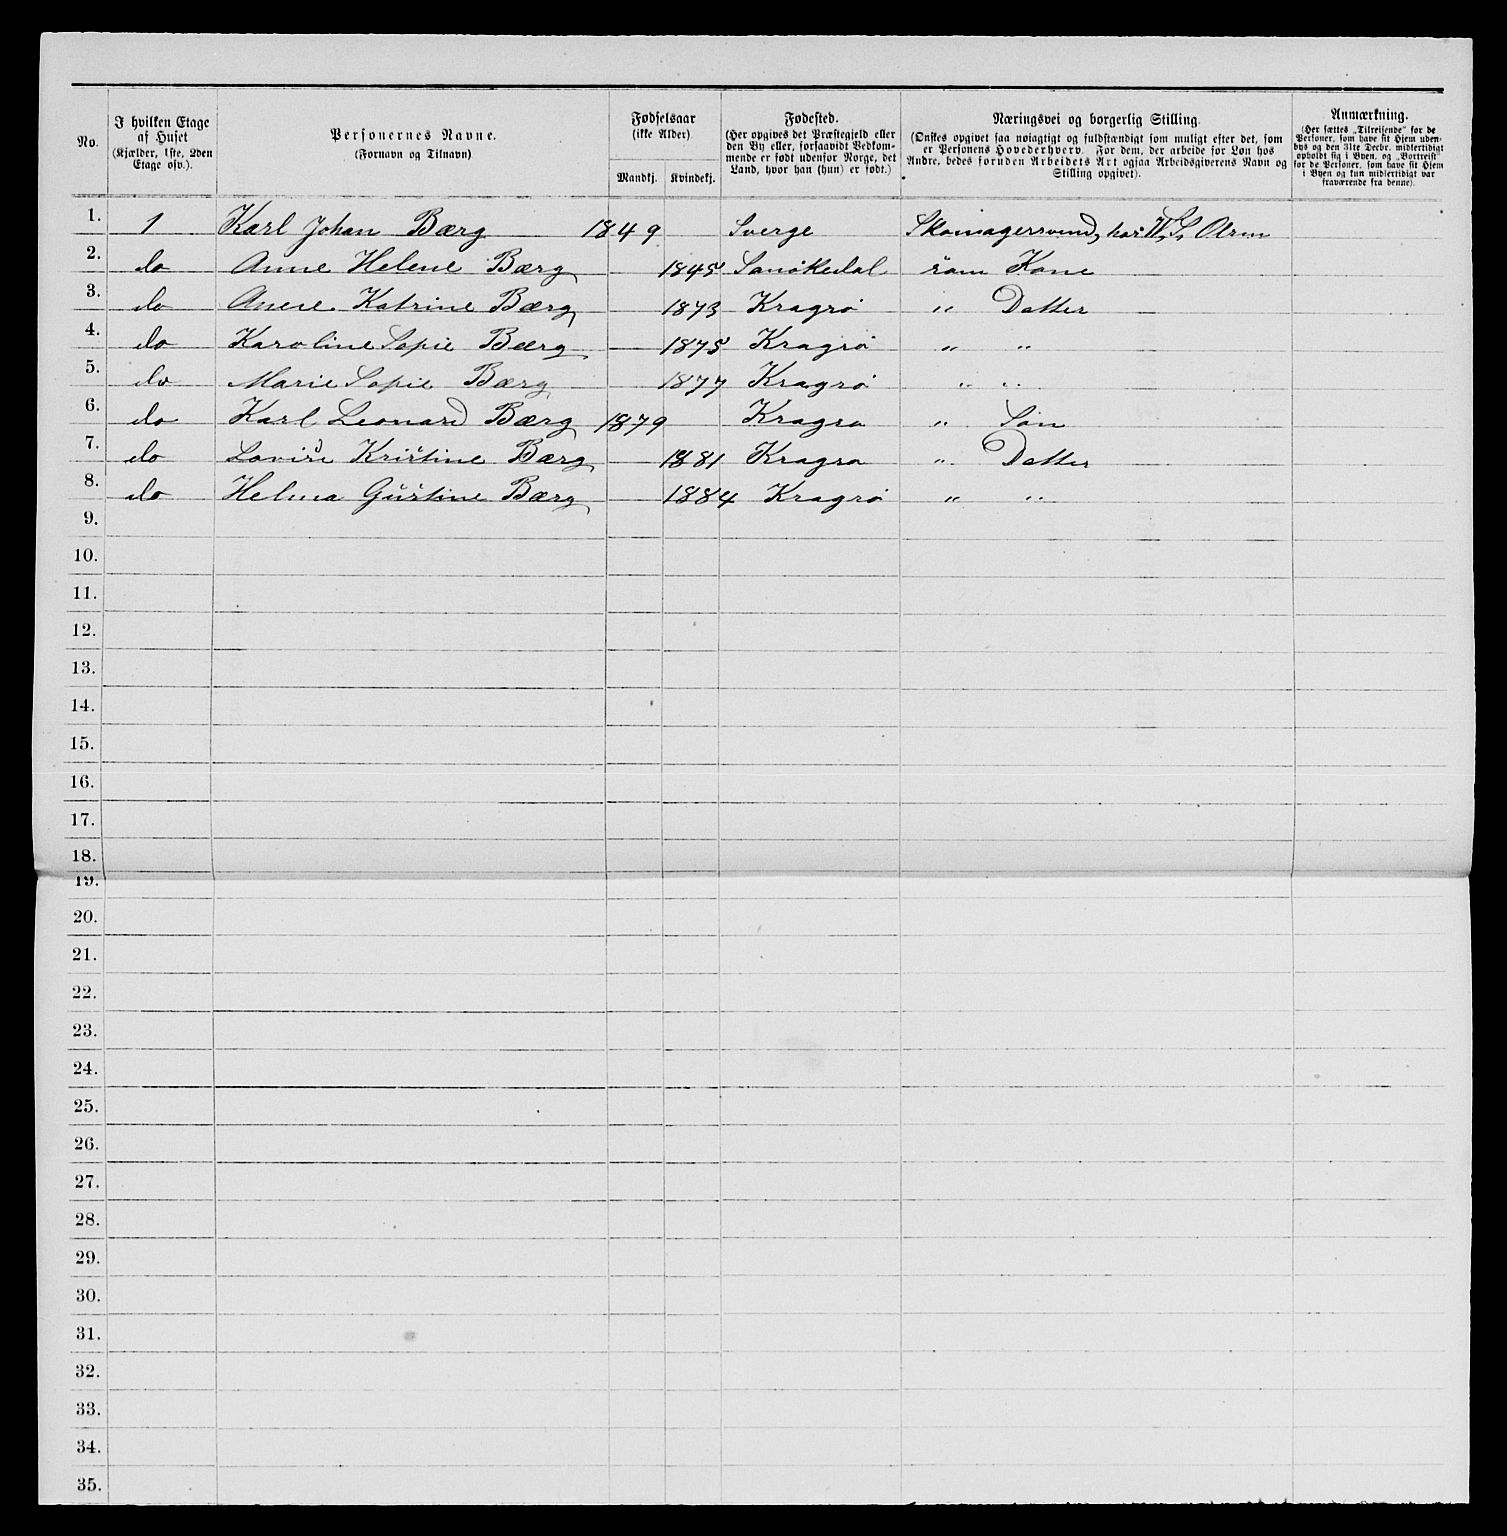 No.
I hvilken Etage af Huset (Kjælder, 1ste, 2den Etage osv.).
Personernes Navne. (Fornavn og Tilnavn)
Fødselsaar (ikke Alder).
Mandkj. Kvindekj.
Fødested. (Her opgives det Præstegjeld eller den By eller, forsaavidt Bedkommende er født udenfor Norge, det Land, hvor han (hun) er født.)
Næringsvei og borgerlig Stilling. (Ønskes opgivet saa nøiagtigt og fuldstændigt som muligt efter det, som er Personens Hovederhverv. For dem, der arbeide for Løn hos Andre, bedes foruden Arbeidets Art ogsaa Arbeidsgiverens Navn og Stilling opgivet).
Anmærkning. (Her sættes „Tilreisende" for de Personer, som have sit Hjem udenbys og den 31te Decbr. midlertidigt opholdt sig i Byen, og „Bortreist" for de Personer, som have sit Hjem i Byen og kun midlertidigt var fraværende fra denne).
1. 1 Karl Johan Bærg 1849 Sverge Skomagersvend, hos
2. do Anne Helene Bærg 1845 Sanøkedal som Kone
3. do Katrine Bærg 1873 Kragrø " Datter
4. do Karoline Sopie Bærg 1875 Kragrø " "
5. do Marie Sopie Bærg 1877 Kragrø " "
6. do Karl Leonard Bærg 1879 Kragrø " Søn
7. do Lovise Kristine Bærg 1881 Kragrø " Datter
8. do Helma Gustine Bærg 1884 Kragrø " "
9.
10.
11.
12.
13.
14.
15.
16.
17.
18.
19.
20.
21.
22.
23.
24.
25.
26.
27.
28.
29.
30.
31.
32.
33.
34.
35.